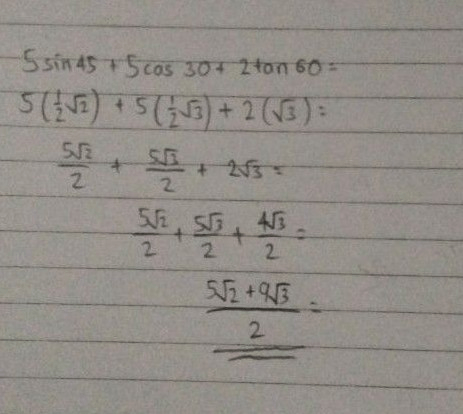 5 sin 45 + 5 cos 30 + 2 tan 60 =
5(½√2) + 5(½√3) + 2(√3) =
5√2/2 + 5√3/2 + 2√3 =
5√2/2 + 5√3/2 + 4√3/2 =
(5√2 + 9√3)/2 =